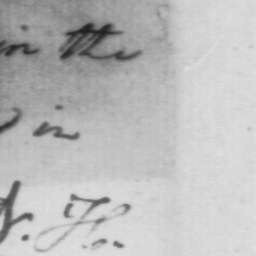 in the
in
N. H.